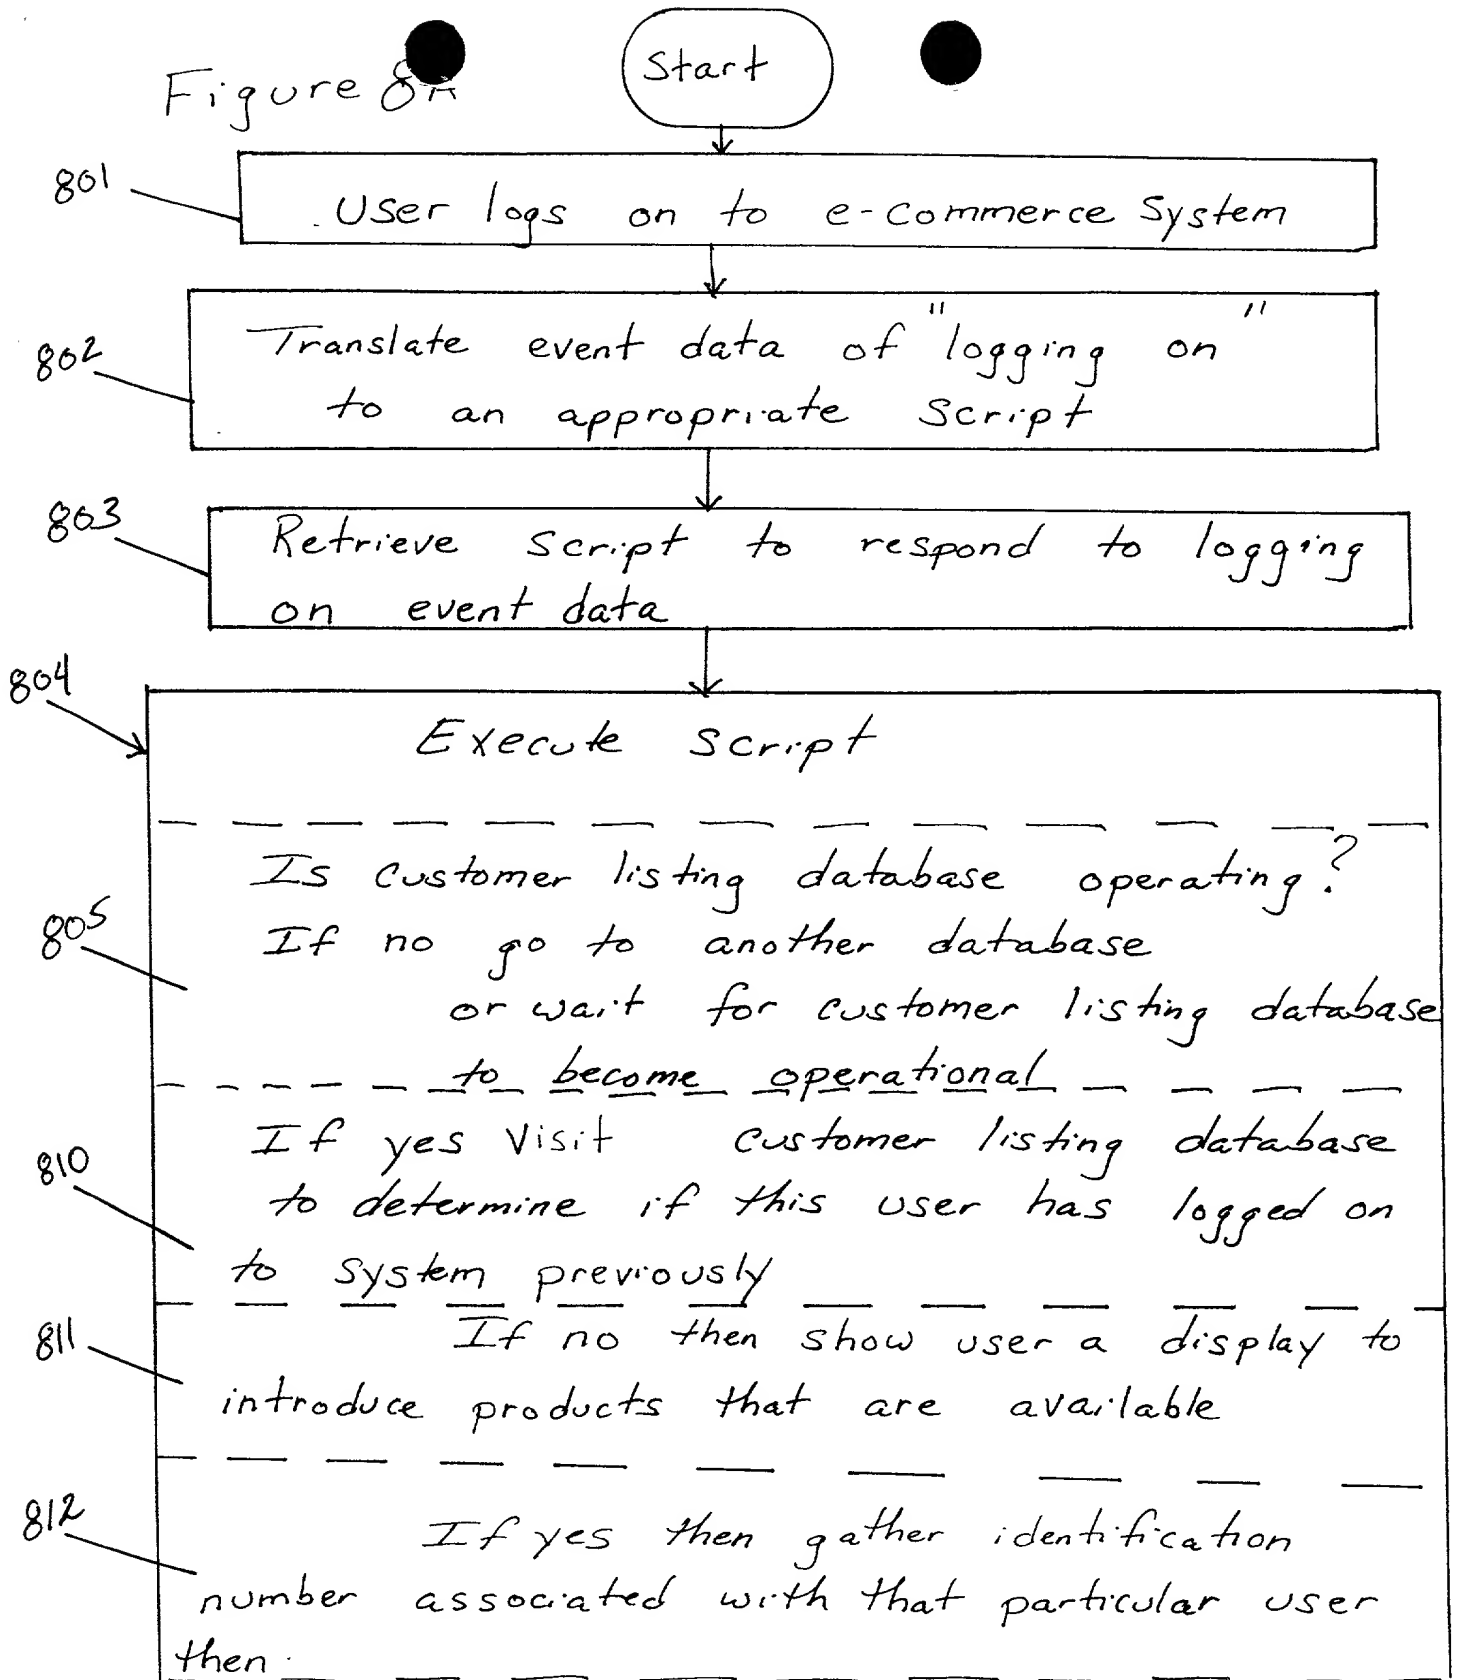 Start
Figure 8A
801
User logs on to e-commerce System
802
Translate event data of "logging on"
to an appropriate Script
803
Retrieve script to respond to logging
on event data
804
Execute script
Is customer listing database operating?
805
If no go to another database
or wait for customer listing database
to become operational
If yes Visit customer listing database
810
to determine if this user has logged on
to system previously
811
If no then show user a display to
introduce products that are available
812
If yes then gather identification
number associated with that particular user
then